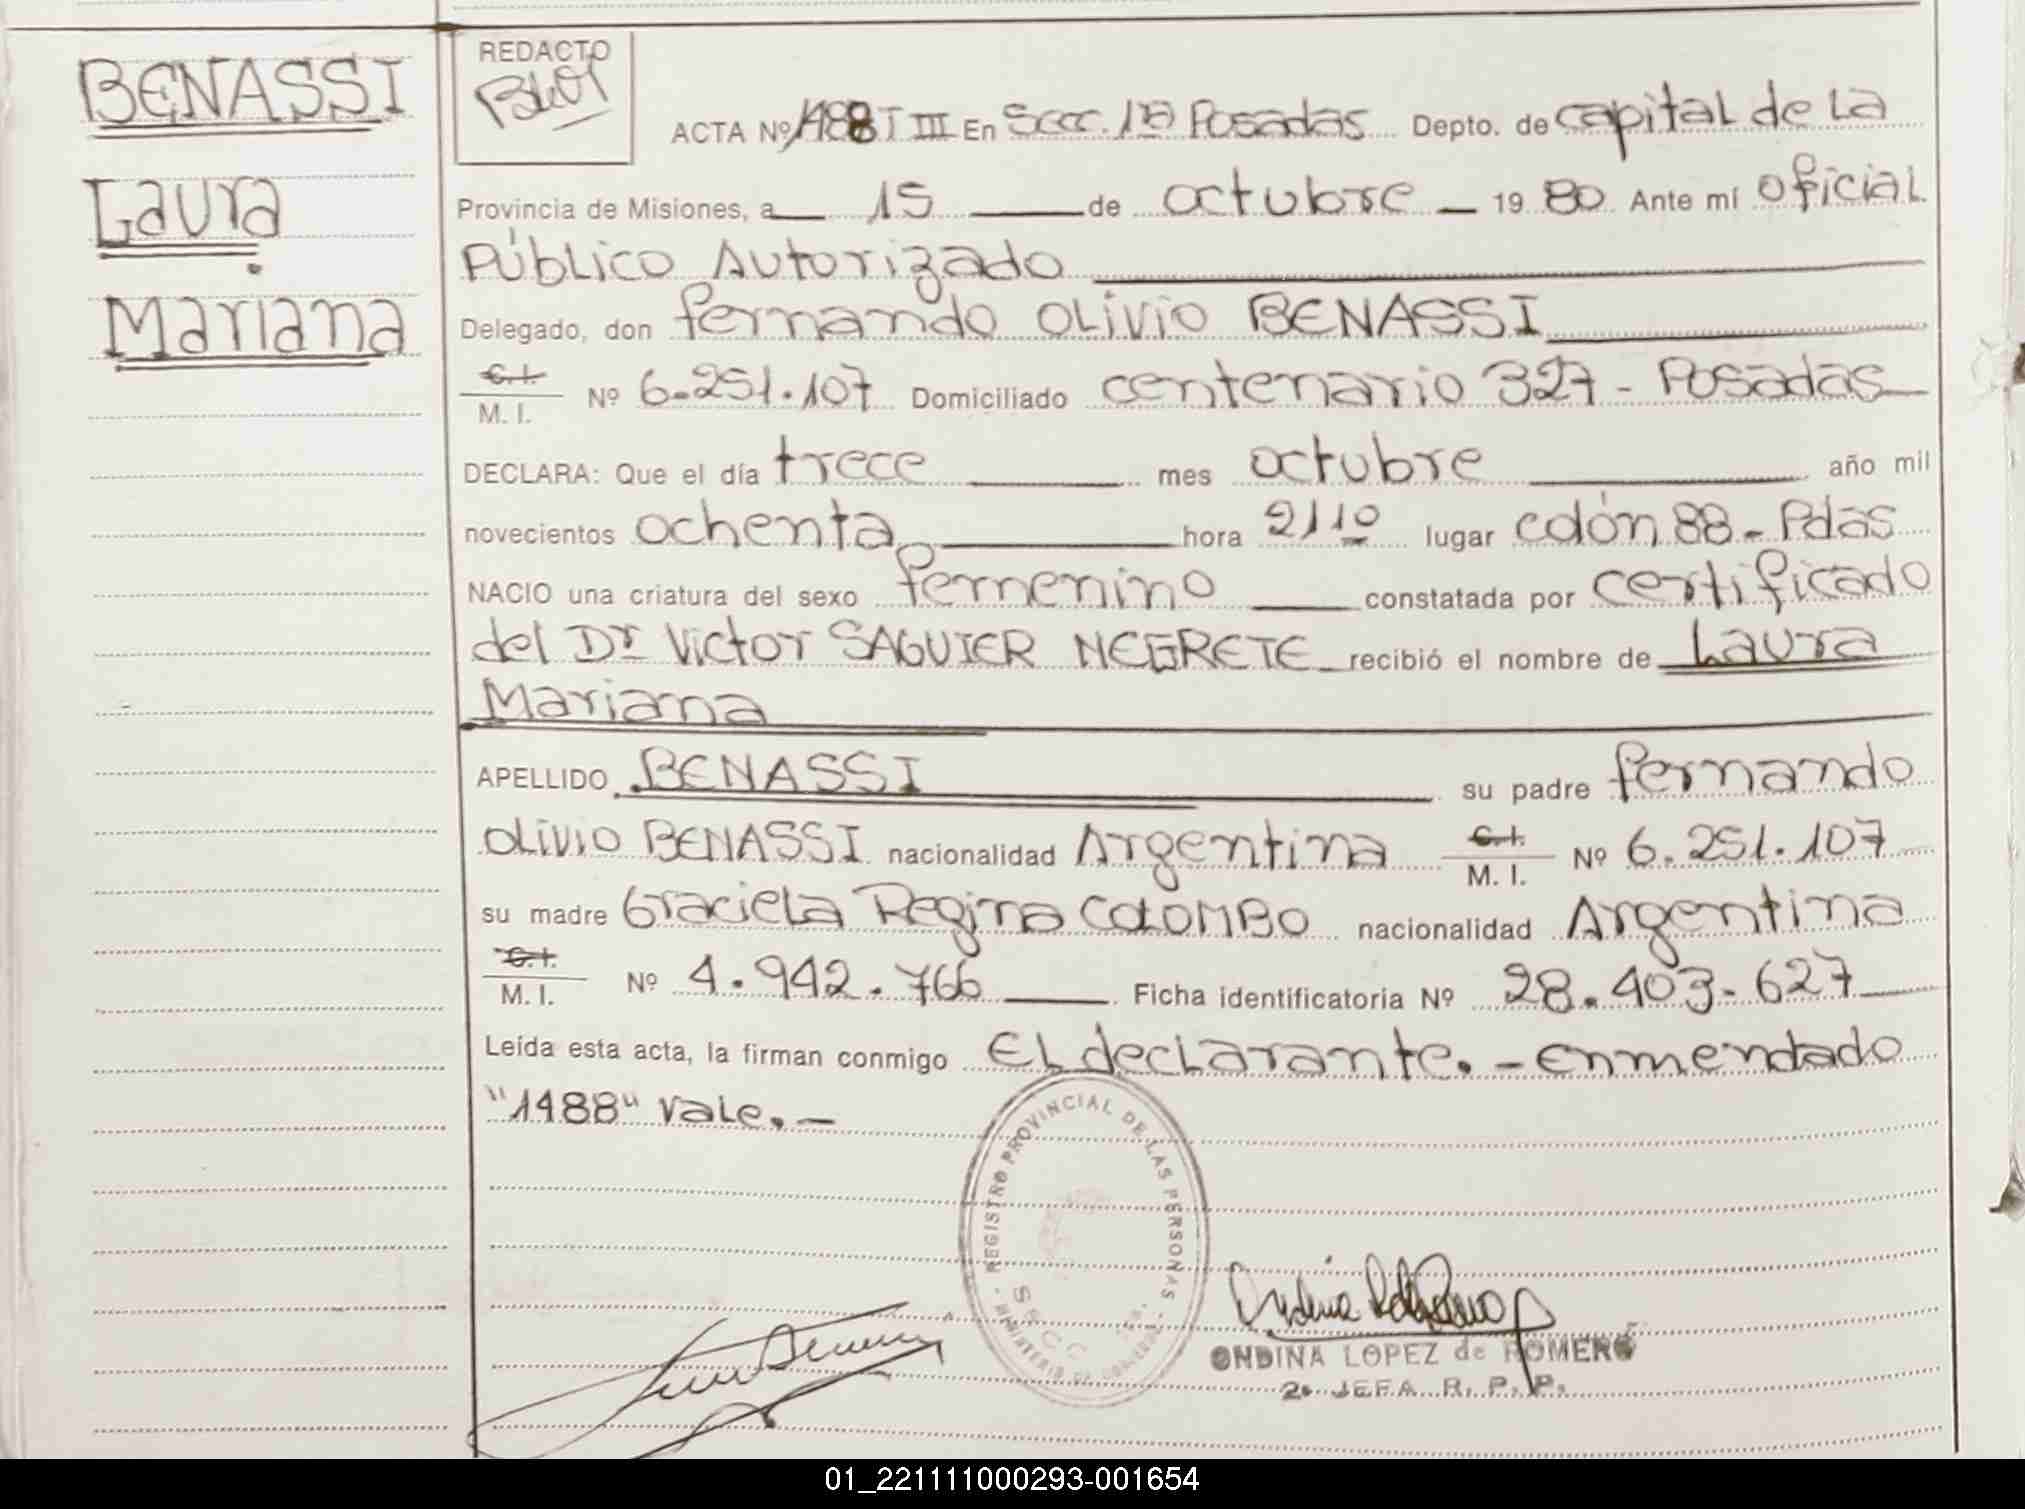 BENASSI
Laura
Mariana
REDACTO
ACTA Nº 1488 T III En Secc. 1ra Posadas Depto. de capital de La
Provincia de Misiones, a 15 de octubre 19 80 Ante mí oficial
Público Autorizado
Delegado, don Fernando Olivio BENASSI
C. I.
M. I. Nº 6.251.107 Domiciliado centenario 327 - Posadas
DECLARA: Que el día trece mes octubre año mil
novecientos ochenta hora 21 10 lugar colón 88 - Pdas
NACIO una criatura del sexo femenino constatada por certificado
del Dr Victor SAGUIER NEGRETE recibió el nombre de Laura
Mariana
APELLIDO BENASSI su padre Fernando
Olivio BENASSI nacionalidad Argentina C. I. M. I. Nº 6.251.107
su madre Graciela Regina COLOMBO nacionalidad Argentina
C. I.
M. I. Nº 4.942.766 Ficha identificatoria Nº 28.403.627
Leída esta acta, la firman conmigo El declarante. - Enmendado
"1488" vale. -
REGISTRO PROVINCIAL DE LAS PERSONAS
MINISTERIO DE GOBIERNO
SECC. 1ra.
ONDINA LOPEZ de ROMERO
2a JEFA R. P. P.
01_221111000293-001654